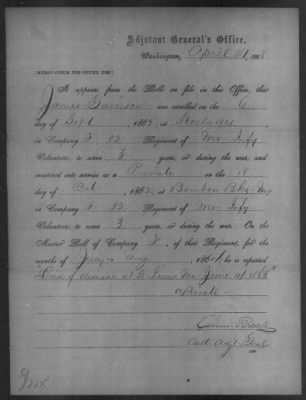 Adjutant General's Office,
Washington, April 21, 186
[MEMORANDUM FOR OFFICE USE.]
It appears from the Rolls on file in this Office, that
James Garrison was enrolled on the 6
day of Sept, 1862, at
in Company F, 32 Regiment of Mo Infy
Volunteers, to serve 3 years, or during the war, and
mustered into service as a Private on the 18
day of Oct, 1862, at Benton Bks Mo
in Company F, 32 Regiment of Mo Infy
Volunteers, to serve 3 years, or during the war. On the
Muster Roll of Company F, of that Regiment, for the
months of July & Aug, 1864, he is reported
"Died of disease at St Louis Mo June
a Private
Asst Adjt Genl